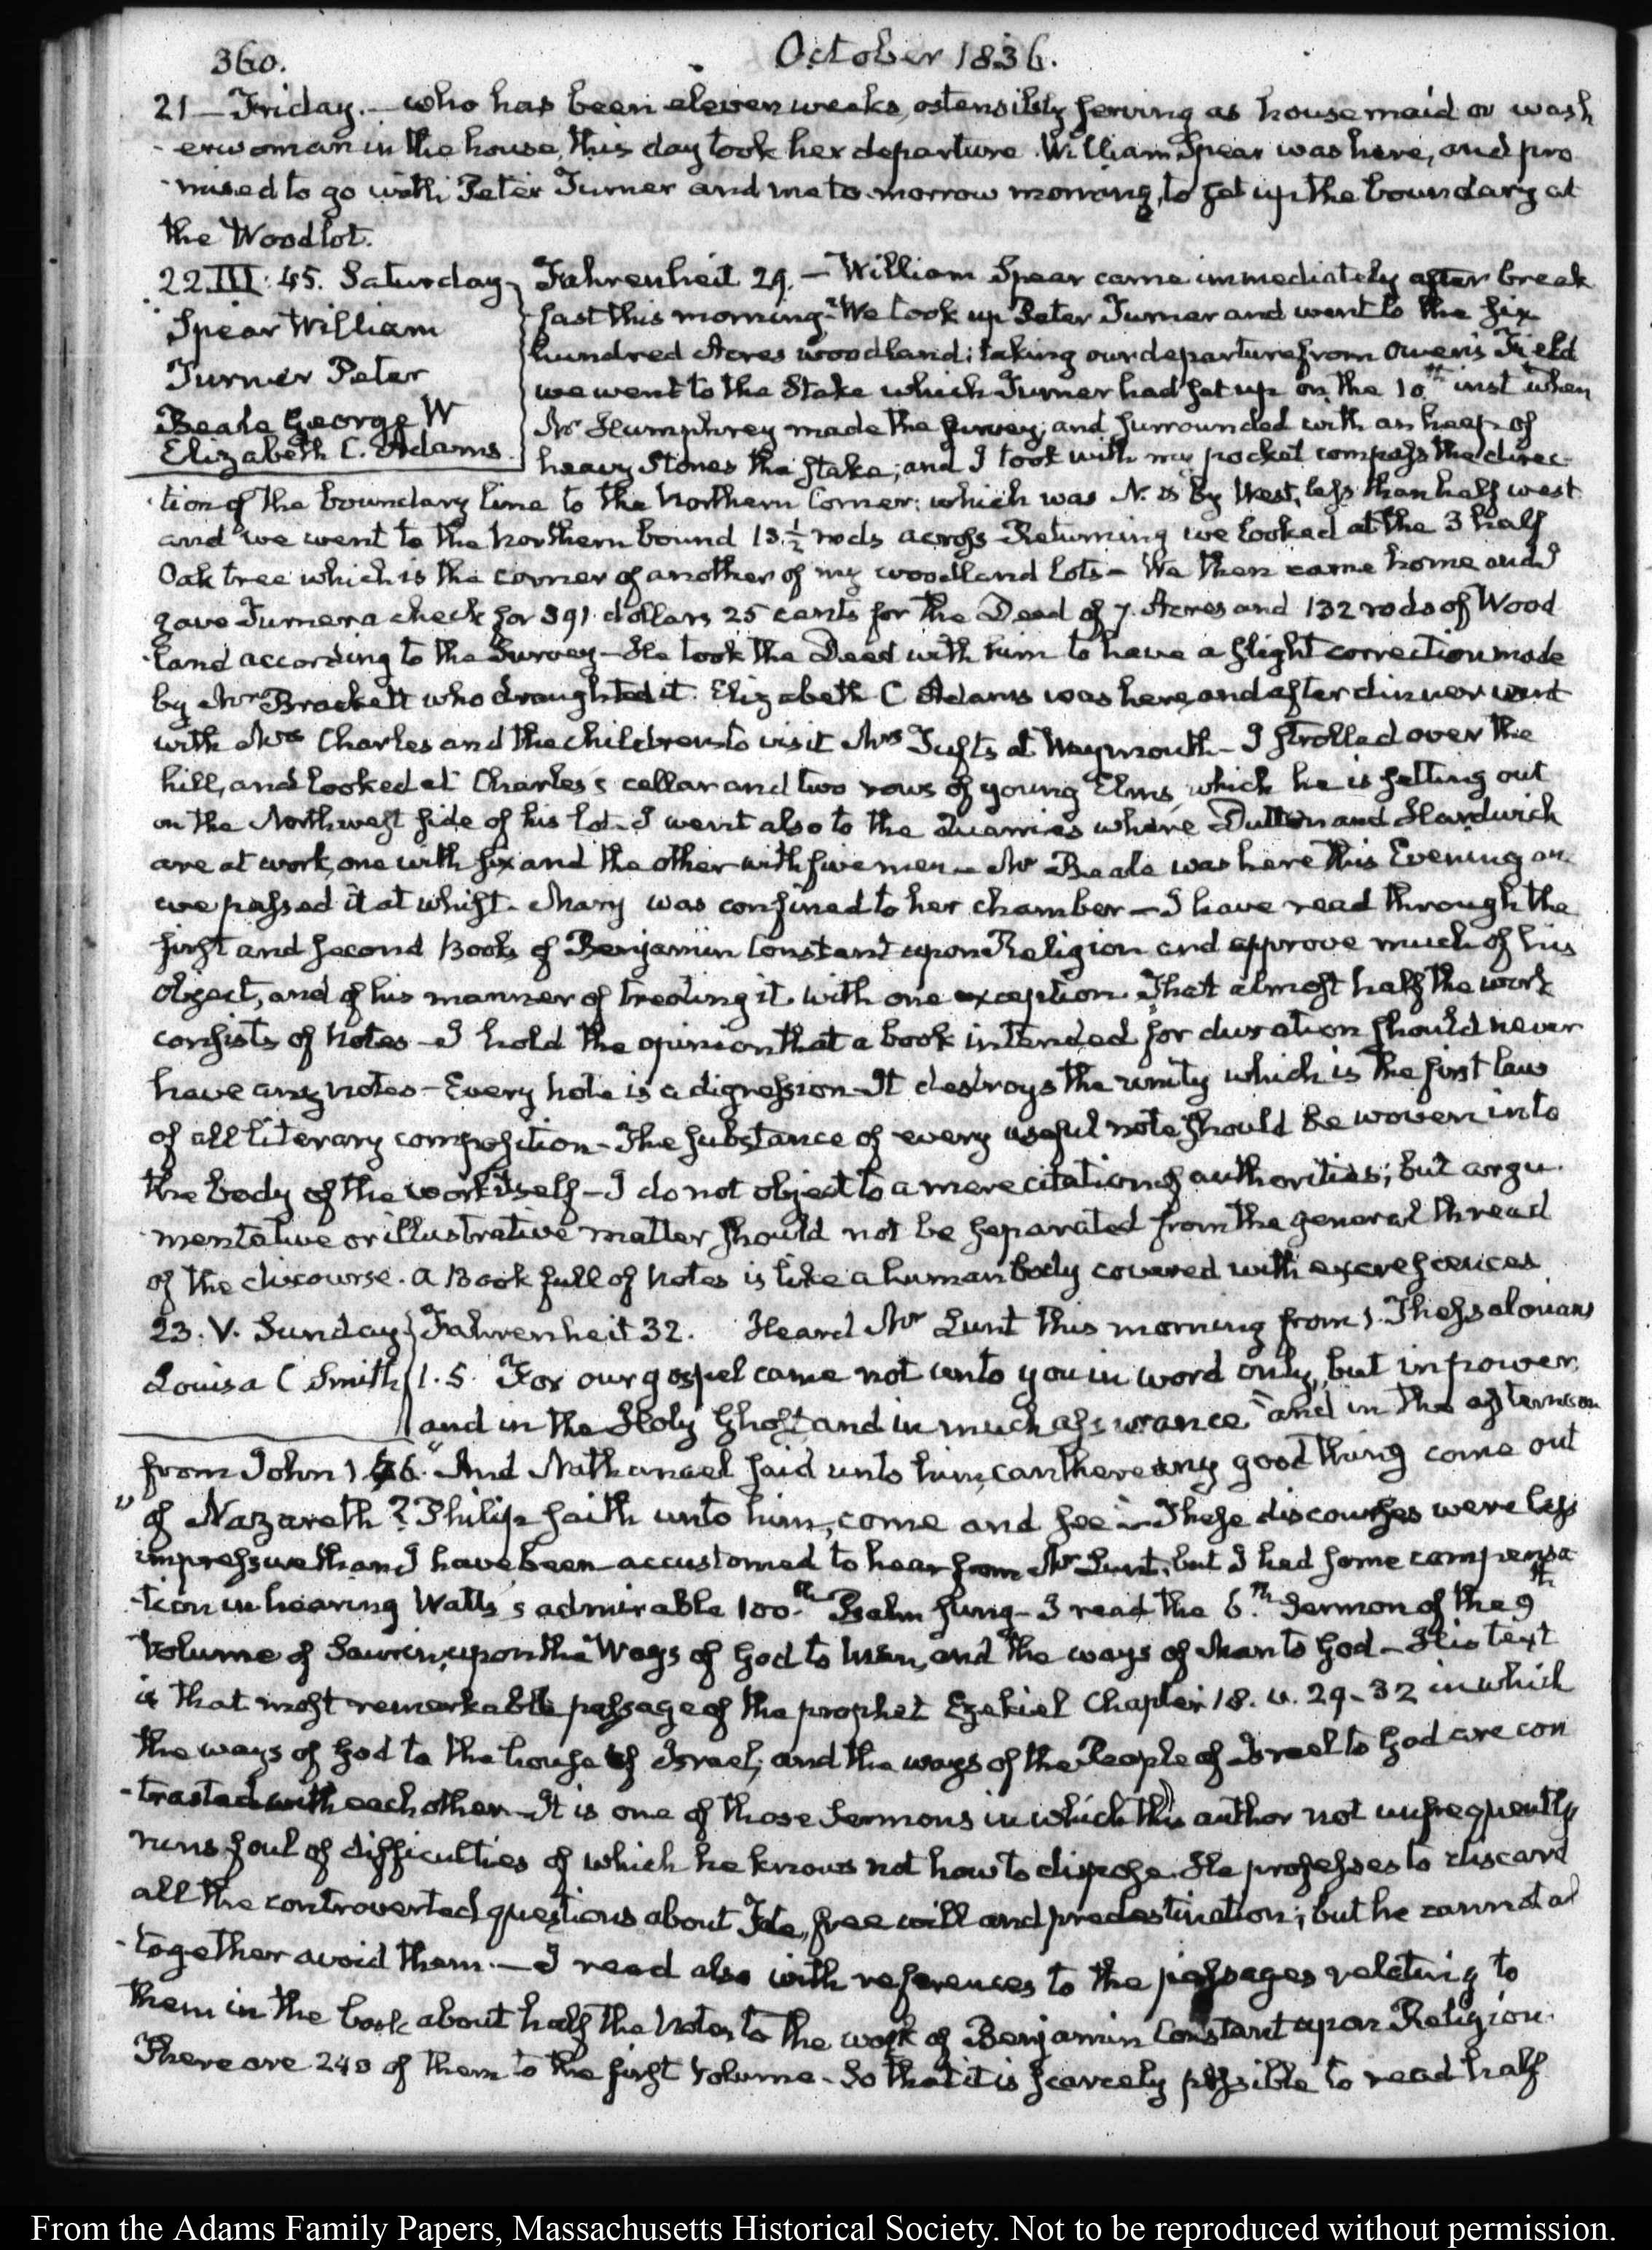 360. October 1836.
21 — Friday. — who has been eleven weeks, ostensibly serving as housemaid or wash
-erwoman in the house, this day took her departure. William Spear was here, and pro
-mised to go with Peter Turner and me to-morrow morning, to set up the boundary at
the Woodlot.
22. III: 45. Saturday
Spear William
Turner Peter
Beale George W
Elizabeth C. Adams.
Fahrenheit 29. — William Spear came immediately after break
-fast this morning. We took up Peter Turner and went to the six
hundred Acres woodland; taking our departure from Owen's Field
we went to the Stake which Turner had set up on the 10th inst when
Mr Humphrey made the survey; and surrounded with an heap of
heavy Stones the stake; and I took with my pocket compass the direc-
-tion of the boundary line to the Northern Corner: which was N. by West, less than half west
and we went to the Northern bound 13 ½ rods across — Returning we looked at the 3 half
Oak tree which is the corner of another of my woodland lots — We then came home and I
gave Turner a check for 391 dollars 25 cents for the Deed of 7. Acres and 132 rods of Wood
-land according to the Survey — He took the Deed with him to have a slight correction made
by Mr Brackett who draughted it. Elizabeth C Adams was here, and after dinner went
with Mrs Charles and the children to visit Mrs Tufts at Weymouth — I strolled over the
hill, and looked at Charles's cellar and two rows of young Elms, which he is setting out
on the Northwest side of his lot. I went also to the Quarries where Dutton and Hardwich
are at work, one with six and the other with five men — Mr Beale was here this Evening an
we passed it at whist. Mary was confined to her chamber — I have read through the
first and second Books of Benjamin Constant upon Religion and approve much of his
object, and of his manner of treating it. with one exception. That almost half the work
consists of Notes — I hold the opinion that a book intended for duration should never
have any notes — Every note is a digression — It destroys the unity which is the first law
of all literary composition — The substance of every useful note should be woven into
the body of the work itself — I do not object to a mere citation of authorities; but argu
-mentative or illustrative matter should not be separated from the general thread
of the discourse. A Book full of Notes is like a human body covered with excrescences
23. V. Sunday
Louisa C Smith
Fahrenheit 32. Heard Mr Lunt this morning from 1. Thessalonians
1. 5. For our gospel came not unto you in word only, but in power,
and in the Holy Ghost and in much assurance" and in the afternoon
from John 1 46. "And Nathanael said unto him, can there any good thing come out
" of Nazareth? Philip saith unto him, come and see" — These discourses were less
impressive than I have been accustomed to hear from Mr Lunt, but I had some compensa
-tion in hearing Watts's admirable 100th Psalm sung — I read the 6th Sermon of the 9th
Volume of Saurin, upon the Ways of God to Man, and the ways of Man to God — His text
is that most remarkable passage of the prophet Ezekiel Chapter 18. v. 29-32 in which
the ways of God to the house of Israel; and the ways of the People of Israel to God are con
-trasted with each other — It is one of those Sermons in which this author not unfrequently
runs foul of difficulties of which he knows not how to dispose. He professes to discard
all the controverted questions about Fate, free will and predestination; but he cannot al
-together avoid them. — I read also with references to the passages relating to
them in the book about half the Notes to the work of Benjamin Constant upon Religion.
There are 240 of them to the first Volume. So that it is scarcely possible to read half
From the Adams Family Papers, Massachusetts Historical Society. Not to be reproduced without permission.